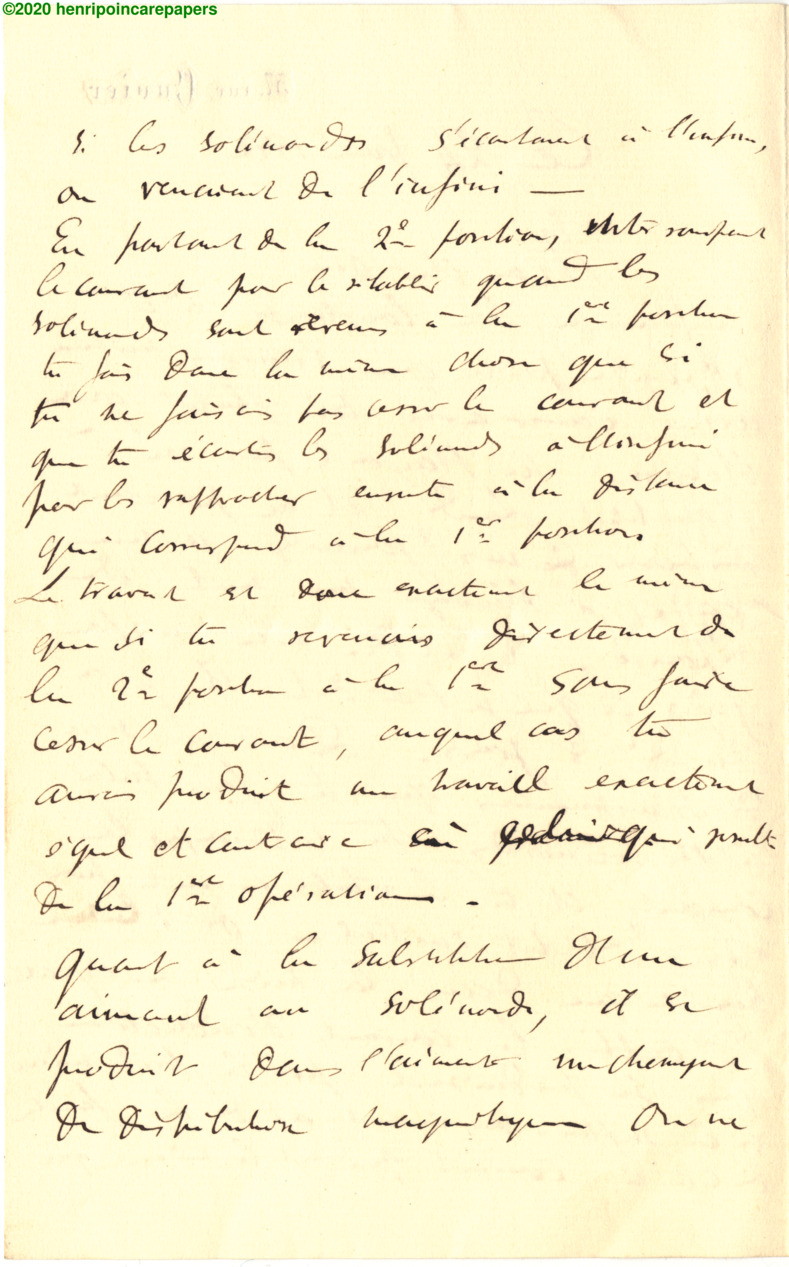 ©2020 henripoincarepapers
si les solénoides s'écartaient à l'infini,
ou venaient de l'infini —
En partant de la 2e position, interrompant
le courant pour le rétablir quand les
solénoids sont revenus à la 1ère position
tu fais donc la même chose que si
tu ne faisais pas cesser le courant et
que tu écartes les solénoids à l'infini
pour les rapprocher ensuite à la distance
qui correspond à la 1ère position.
Le travail est donc exactement le même
que si tu revenais directement de
la 2e position à la 1ère sans faire
cesser le courant, auquel cas tu
aurais produit un travail exactement
égal et contraire qui résulte
de la 1ère opération.
Quant à la substitution d'un
aimant au solénoide, il se
produit dans l'aimant un changement
de distribution magnétique On ne